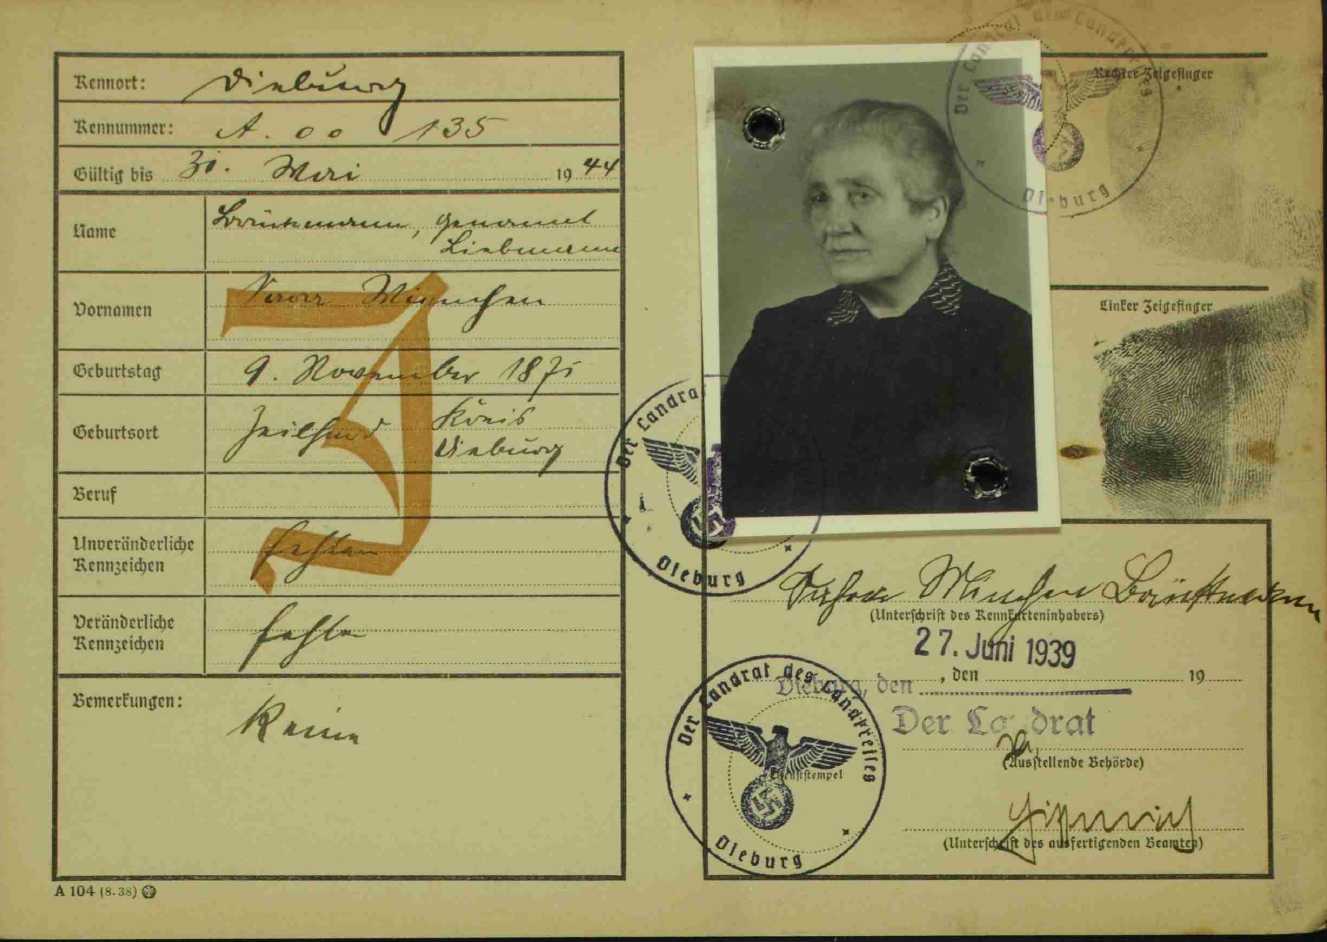 Kennort: Dieburg
Kennummer: A. 00 135
Gültig bis 31. Mai 1944
Name
genannt
Liebmann
Vornamen
Geburtstag 9. November 1871
Geburtsort Zeilhard Kreis
Dieburg
Beruf
Unveränderliche
Kennzeichen fehlen
Veränderliche
Kennzeichen fehlen
Bemerkungen: Keine
A 104 (8. 38)
J
Der Landrat des Landkreises
Dieburg
Rechter Zeigefinger
Linker Zeigefinger
Der Landrat
Dieburg
(Unterschrift des Kennkarteninhabers)
27. Juni 1939
Dieburg, den , den 19
Der Landrat
(Ausstellende Behörde)
Der Landrat des Landkreises
Dienststempel
Dieburg
(Unterschrift des ausfertigenden Beamten)